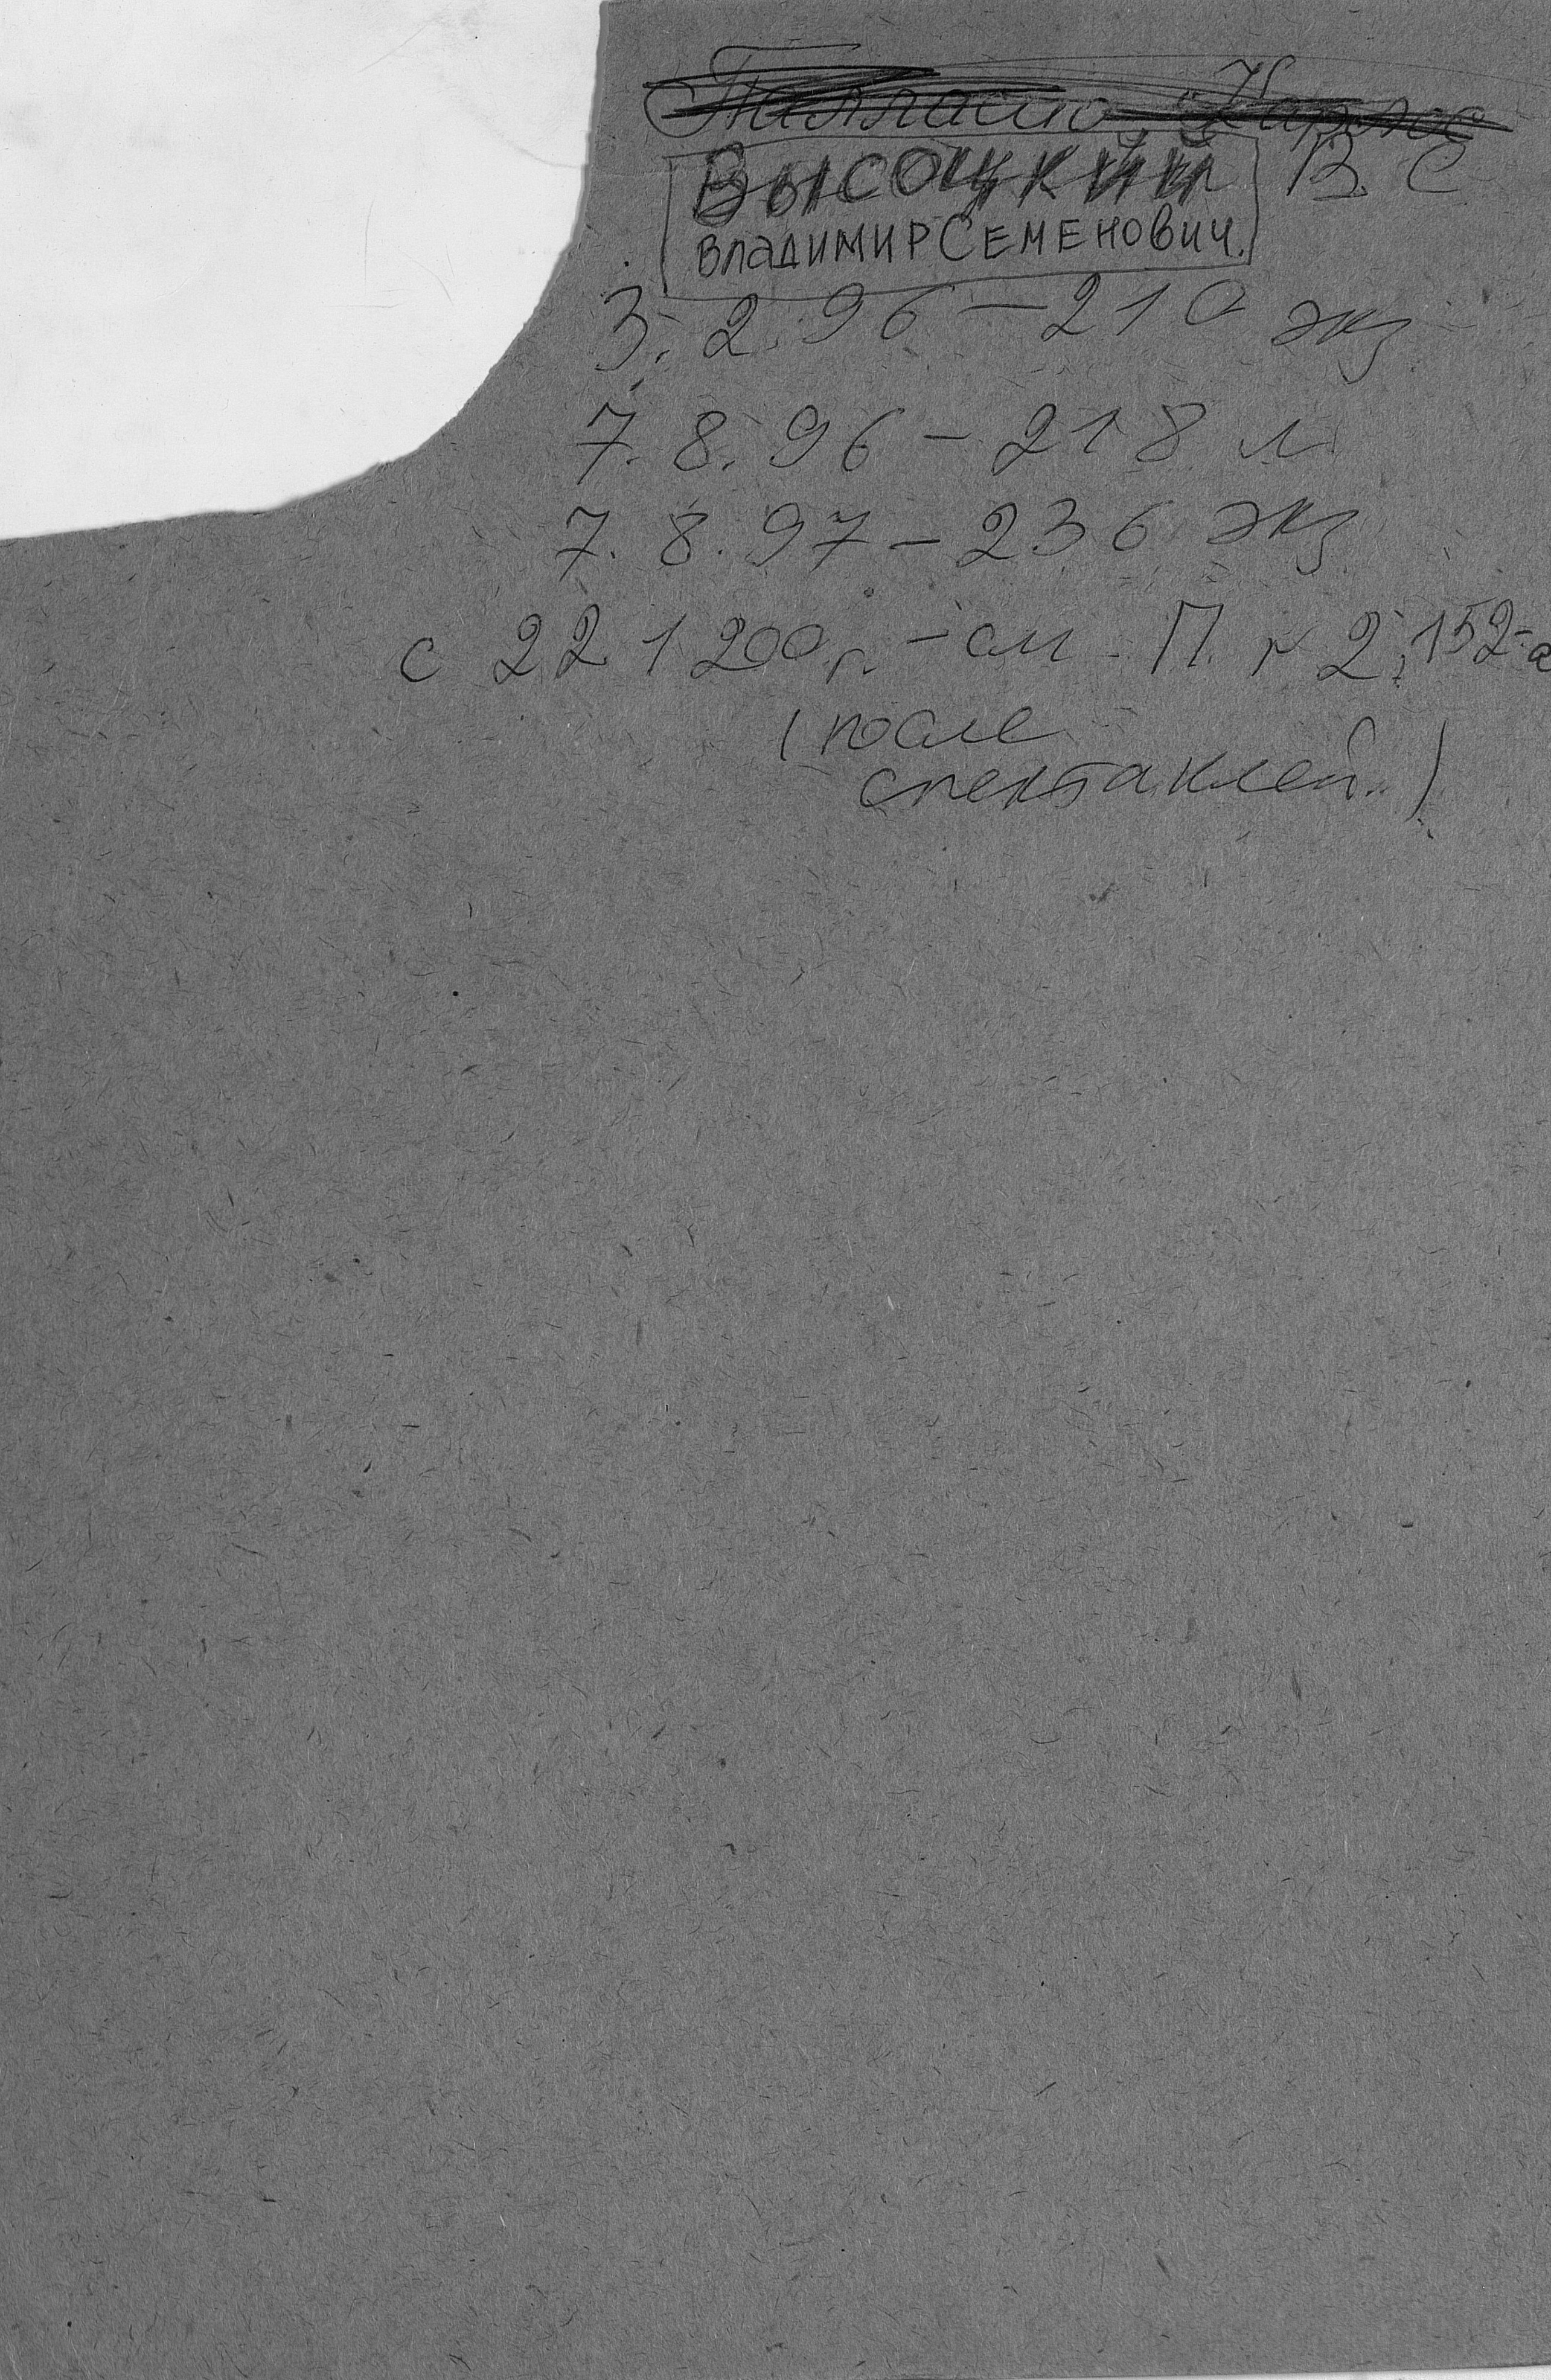 ВЫСОЦКИЙ В. С
ВЛАДИМИР СЕМЕНОВИЧ.
3. 2. 96 – 210 экз
7. 8. 96 – 218 л
7. 8. 97 – 236 экз
с 22 1 200 г. – см. П. 2, 152-а
(после
спектаклей.)